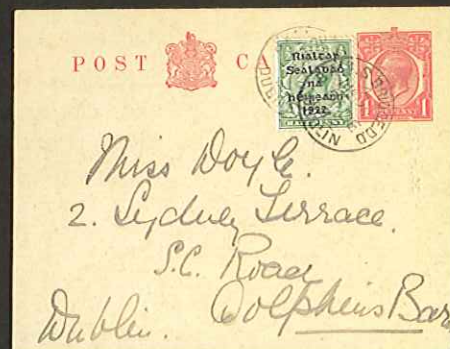 POST CA
Rialtar
Sealadac
na
hÉireann
1922
Miss Doyle.
2. Sydney Terrace.
S.C. Road
Dolphins Bar
Dublin.